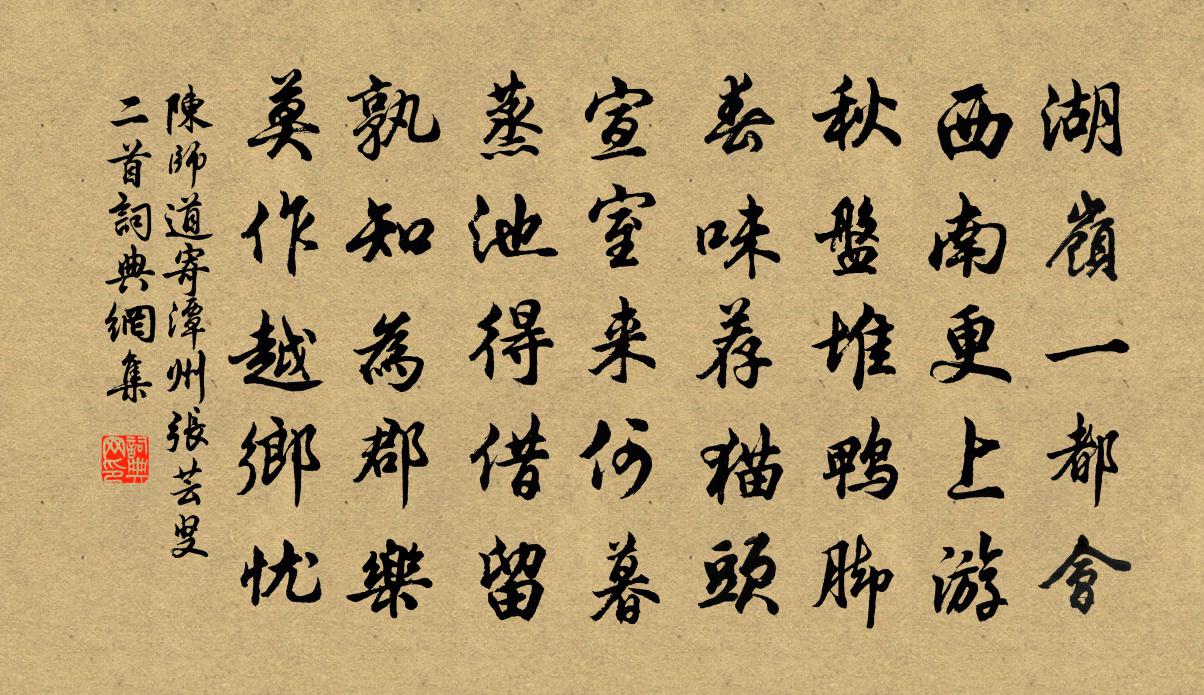 湖嶺一都會
西南更上游
秋盤堆鴨脚
春味荐猫頭
宣室来何暮
蒸池得借留
孰知為郡樂
莫作越鄉忧
陳師道寄潭州張芸叟
二首詞典網集
詞典网印